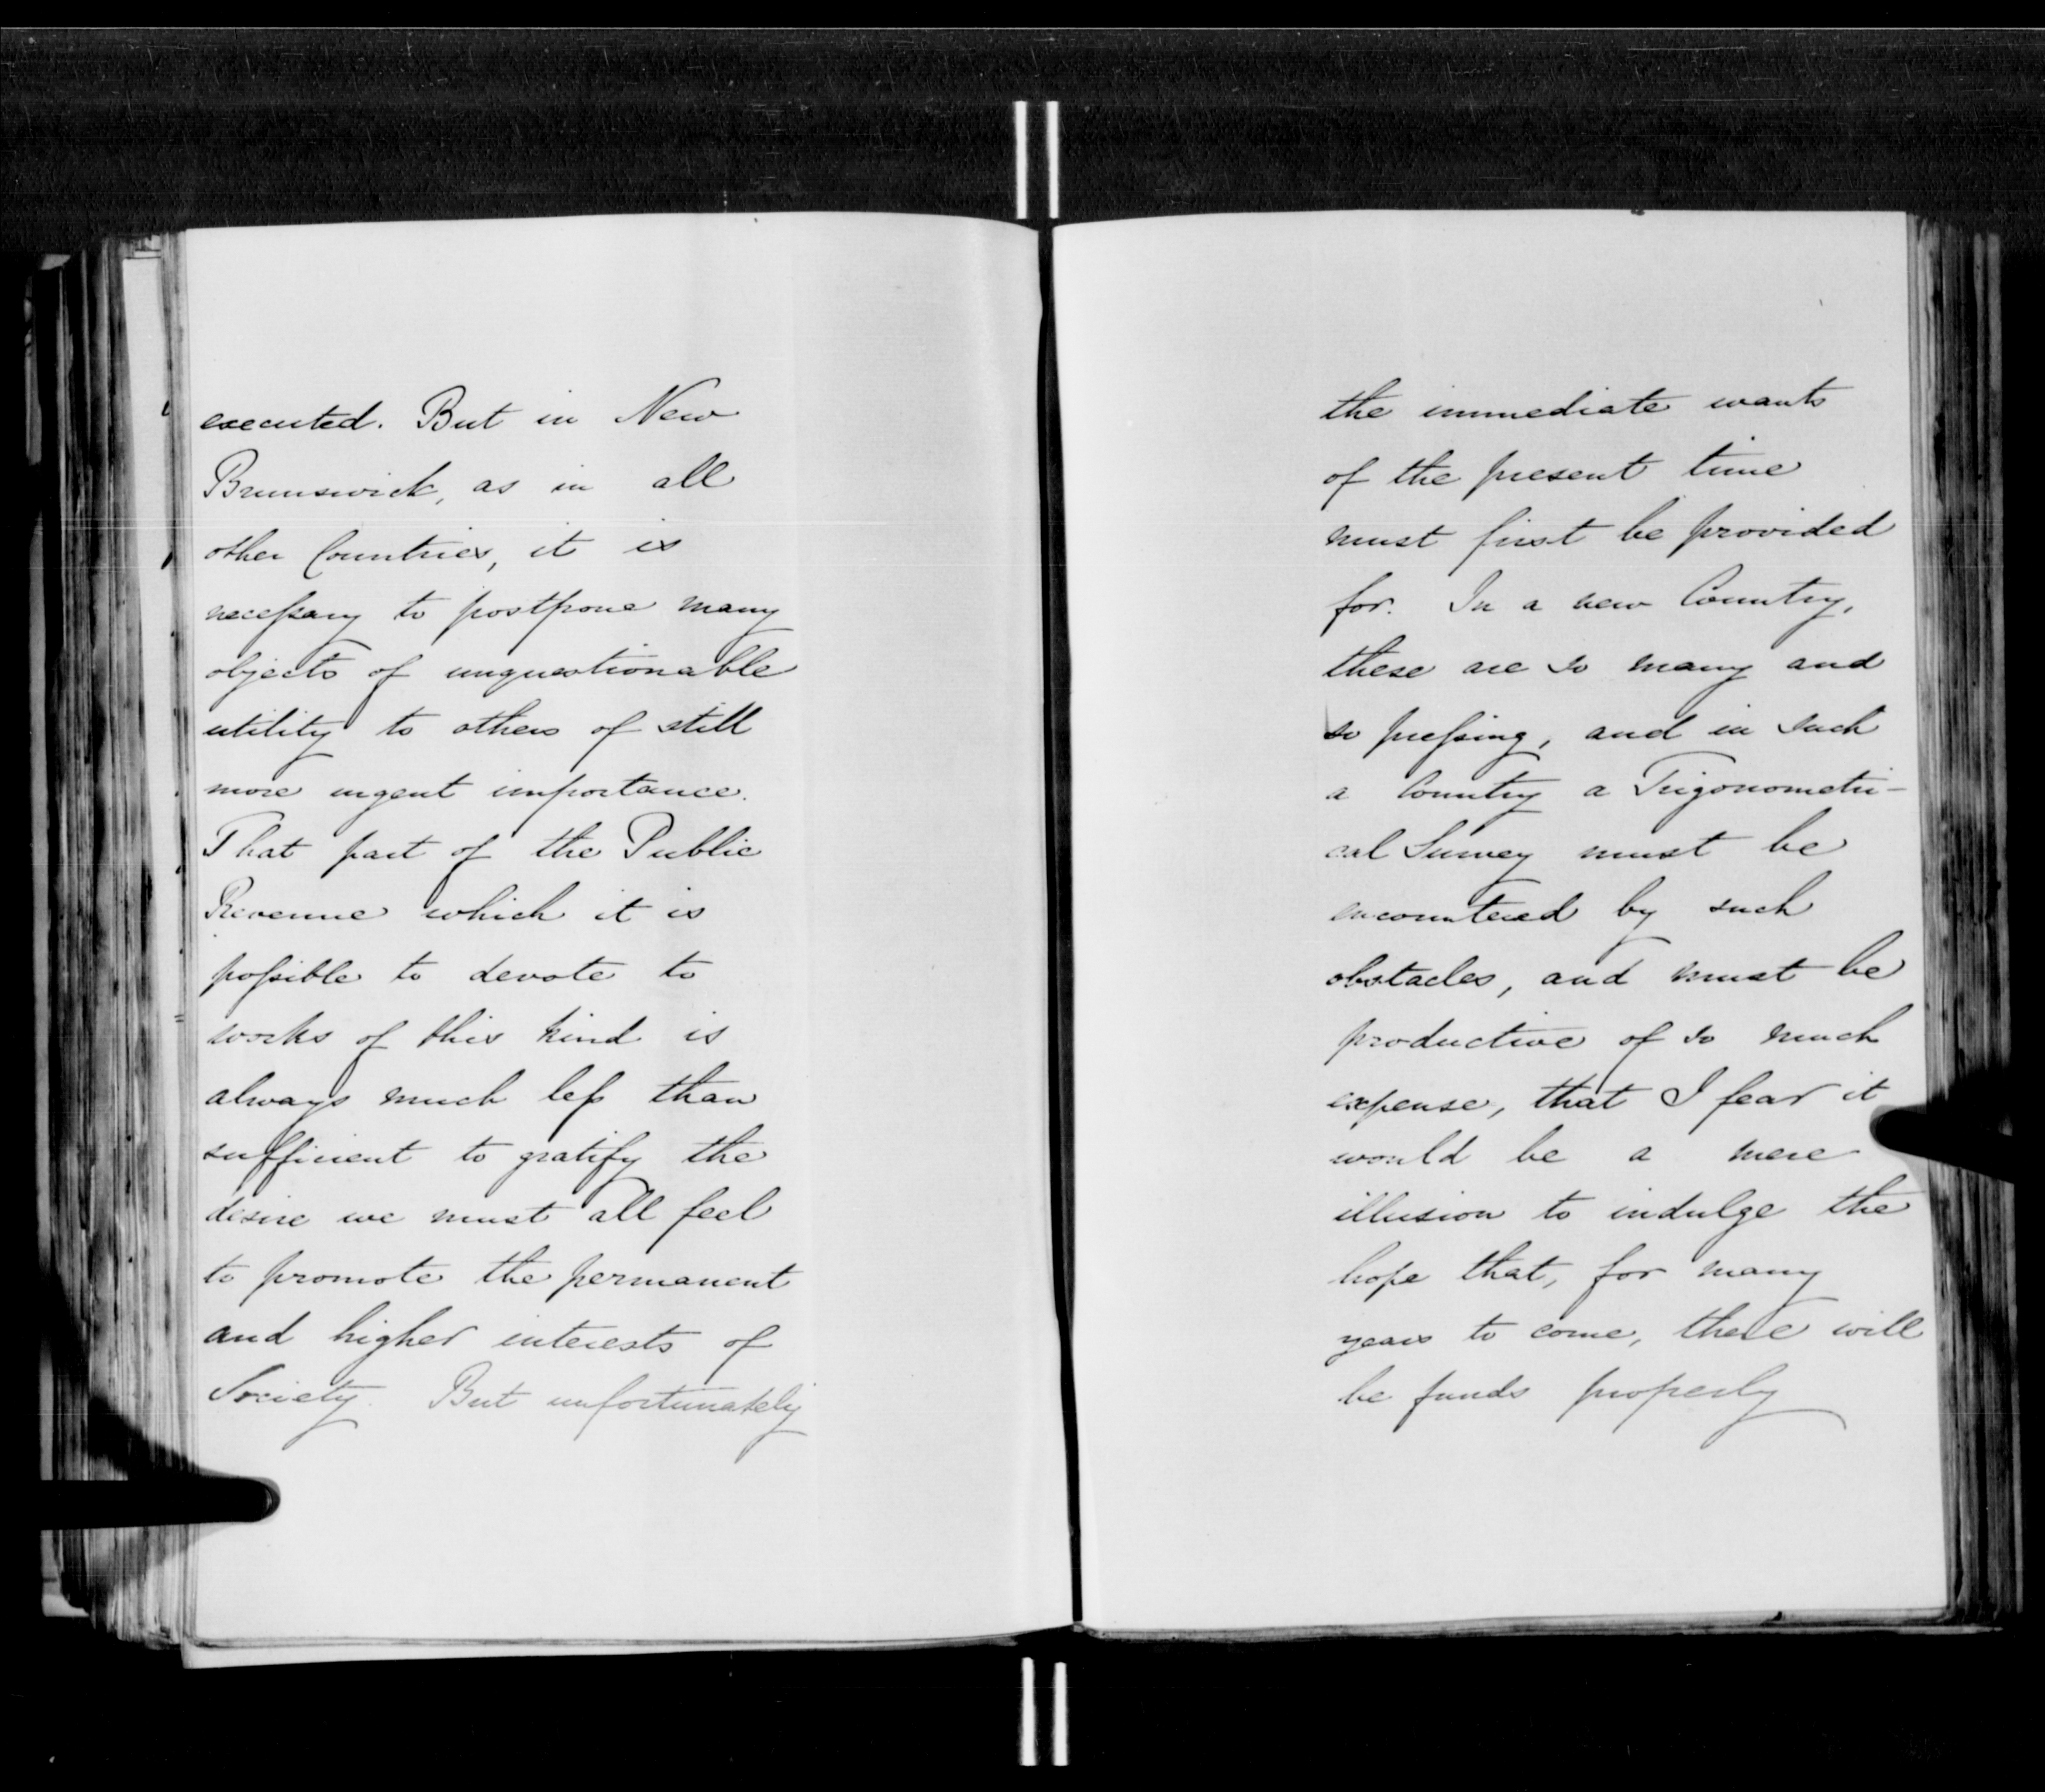 executed. But in New
Brunswick, as in all
other Countries, it is
necessary to postpone many
objects of unquestionable
utility to others of still
more urgent importance.
That part of the Public
Revenue which it is
possible to devote to
works of this kind is
always much less than
sufficient to gratify the
desire we must all feel
to promote the permanent
and higher interests of
Society. But unfortunately
the immediate wants
of the present time
must first be provided
for. In a new Country,
these are so many and
so pressing, and in such
a Country a Trigonometri-
cal Survey must be
encountered by such
obstacles, and must be
productive of so much
expense, that I fear it
would be a mere
illusion to indulge the
hope that, for many
years to come, there will
be funds properly